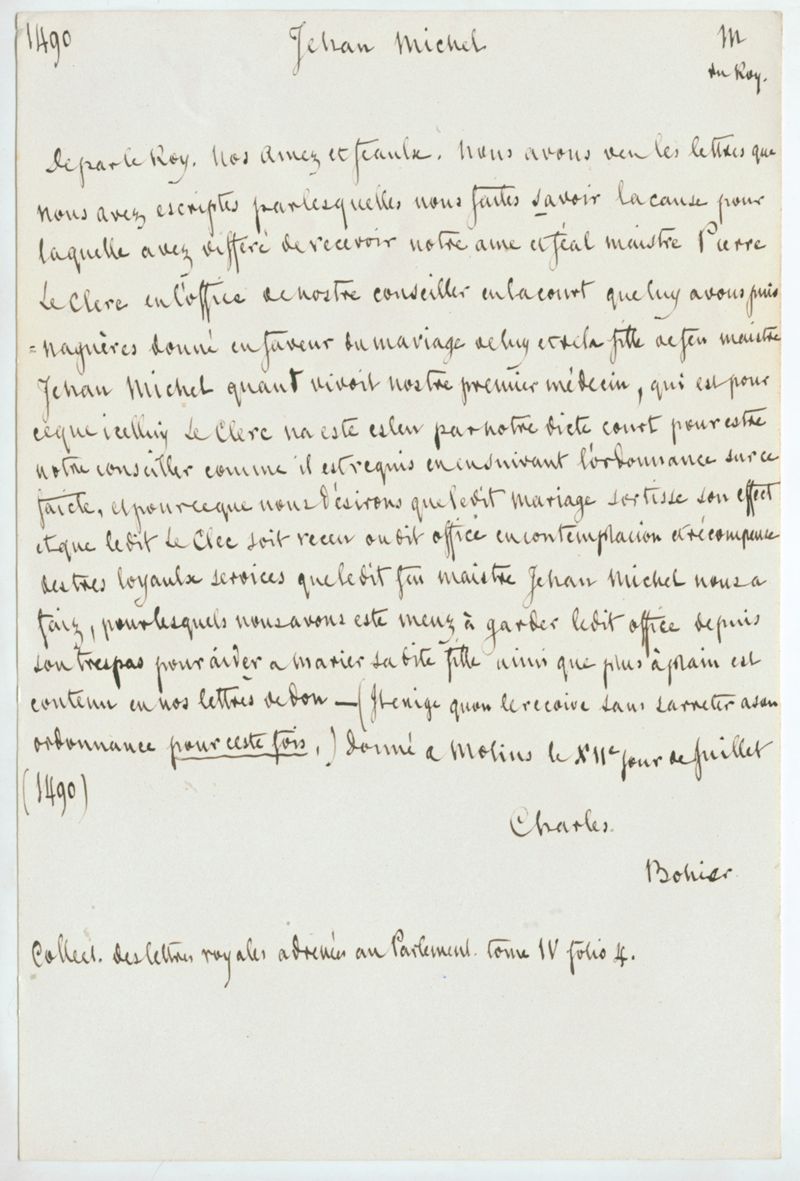 1490 Jehan Michel M
du Roy.
De par le Roy. Nos Amez et feaulx. Nous avons veu les lettres que
nous avez escriptes par lesquelles nous faites savoir la cause pour
laquelle avez differé de recevoir notre ame et féal maistre Pierre
Le Clerc en l'office de nostre conseiller en la court que luy avons puis
=naguères donné en faveur du mariage de luy et de la fille de feu maistre
Jehan Michel quant vivoit nostre premier médecin, qui est pour
ce que icelluy Le Clerc na este esleu par notre dicte court pour estre
notre conseiller comme il est requis en ensuivant l'ordonnance sur ce
faicte, et pour ce que nous désirons que le dit mariage sortisse son effect
et que le dit Le Clec soit receu ou dit office en contemplacion et récompense
des tres loyaulx services que le dit feu maistre Jehan Michel nous a
faiz, pour lesquels nous avons este meuz à garder le dit office depuis
son trespas pour aider a marier sa dite fille ainsi que plus à plain est
contenu en nos lettres de don — (Il exige quon le recoive sans sarreter a son
ordonnance pour ceste fois,) donné a Molins le XIIe jour de Juillet
(1490)
Charles.
Bohier
Collect. des lettres royales adressées au Parlement. tome IV folio 4.